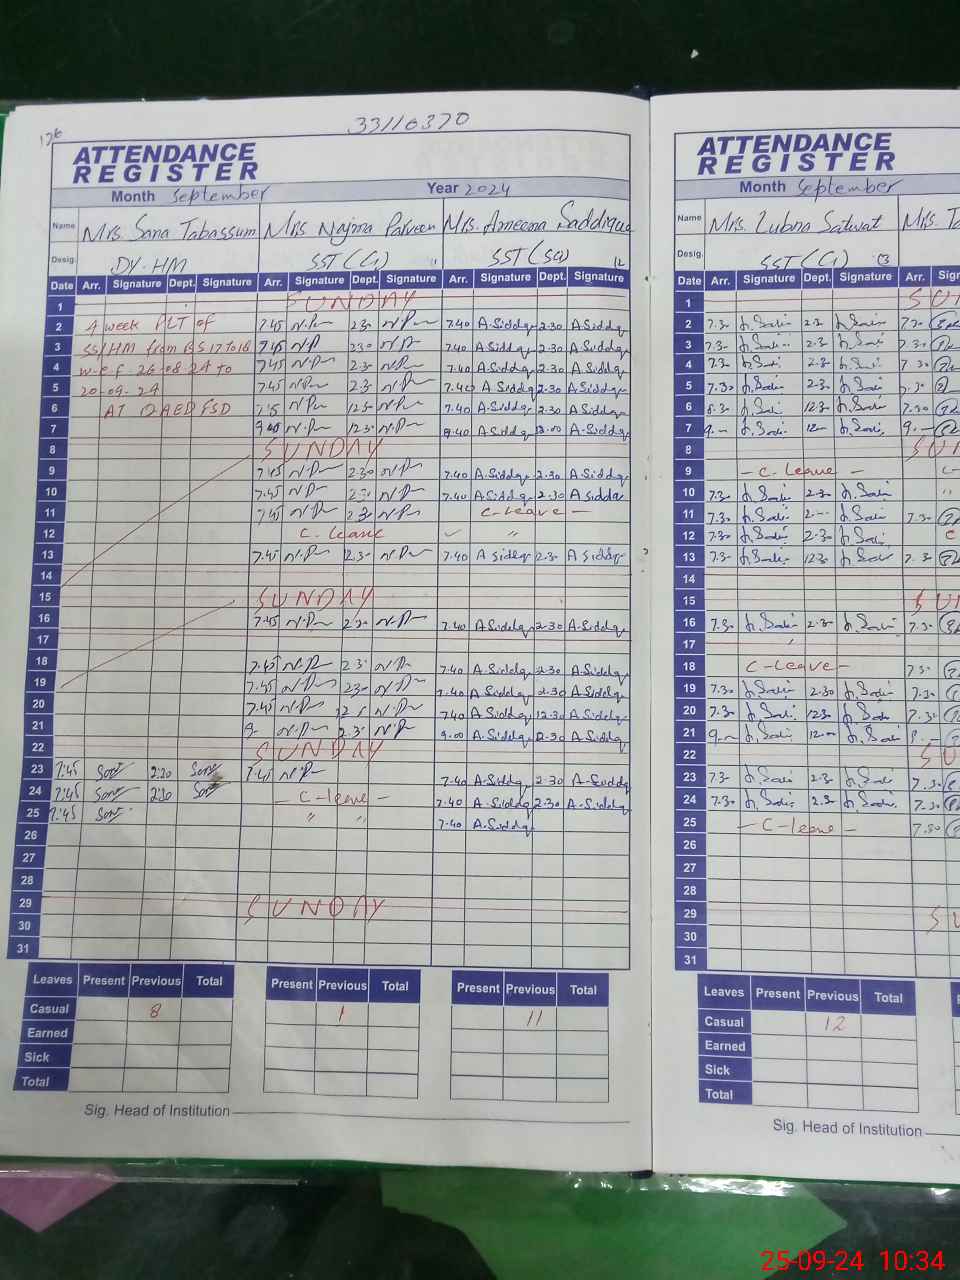 33110370
ATTENDANCE
REGISTER
Month September Year 2024
Name Mrs. Sana Tabassum Mrs Najma Parveen Mrs. Ameena Saddique
Desig. DY-HM SST (G) 11 SST (SG) 12
Date Arr. Signature Dept. Signature Arr. Signature Dept. Signature Arr. Signature Dept. Signature
1 SUNDAY
2 4 week PLT of 7.45 N.P 2.30 N.P 7.40 A.Siddq 2.30 A.Siddq
3 SS/HM from BS 17 to 18 7.45 N.P 2.30 N.P 7.40 A.Siddq 2.30 A.Siddq
4 w.e.f 26 08 24 to 7.45 N.P 2.3 N.P 7.40 A.Siddq 2.30 A.Siddq
5 20-09-24 7.45 N.P 2.3 N.P 7.40 A.Siddq 2.30 A.Siddq
6 AT QAED FSD 7.45 N.P 12.3 N.P 7.40 A.Siddq 2.30 A.Siddq
7 9.00 N.P 12.3 N.P 8.40 A.Siddq 12.00 A.Siddq
8 SUNDAY
9 7.45 N.P 2.30 N.P 7.40 A.Siddq 2.30 A.Siddq
10 7.45 N.P 2.3 N.P 7.40 A.Siddq 2.30 A Siddq
11 7.45 N.P 2.30 N.P C-Leave -
12 C. Leave "
13 7.45 N.P 12.3 N.P 7.40 A Siddq 2.30 A Siddq
14
15 SUNDAY
16 7.45 N.P 2.30 N.P 7.40 A.Siddq 2.30 A.Siddq
17
18 7.45 N.P 2.3 N.P 7.40 A.Siddq 2.30 A.Siddq
19 7.45 N.P 2.30 N.P 7.40 A.Siddq 2.30 A.Siddq
20 7.45 N.P 12 N.P 7.40 A Siddq 12.30 A.Siddq
21 9- N.P 2.3 N.P 9.00 A.Siddq 2.30 A.Siddq
22 SUNDAY
23 7:45 2:30 7.45 N.P 7.40 A.Siddq 2.30 A.Siddq
24 7:45 2:30 - C-leave - 7.40 A.Siddq 2.30 A.Siddq
25 7:45 " " 7.40 A.Siddq
26
27
28
29 SUNDAY
30
31
Leaves Present Previous Total Present Previous Total Present Previous Total
Casual 8 1 11
Earned
Sick
Total
Sig. Head of Institution
ATTENDANCE
REGISTER
Month September
Name Mrs. Lubna Satwat Mrs.
Desig. SST (G) 13
Date Arr. Signature Dept. Signature Arr.
1 SU
2 7.3- 2.3- 7.30
3 7.3- 2.3- 7.30
4 7.3- 2.3- 7.30
5 7.30 2.3- 7.30
6 8.3- 12.3- 7.30
7 9.- 12- 9.-
8 SU
9 - C. Leave -
10 7.3- 2.3-
11 7.3- 2.- 7.30
12 7.3- 2.3-
13 7.3- 12.3- 7.3-
14
15 SU
16 7.3- 2.3- 7.3-
17
18 C-Leave - 7.30
19 7.30 2.30 7.3-
20 7.3- 12.3- 7.3-
21 9.- 12.- 8.-
22 SU
23 7.3- 2.3- 7.3-
24 7.30 2.3- 7.30
25 - C-leave - 7.30
26
27
28
29 SU
30
31
Leaves Present Previous Total
Casual 12
Earned
Sick
Total
Sig. Head of Institution
25-09-24 10:34